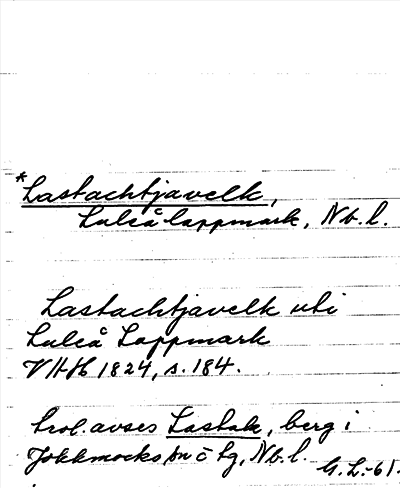 *Lastachtjavelk,
Luleå lappmark, Nb. l.
Lastachtjavelk uti
Luleå Lappmark
VHH 1824, s. 184.
trol. avses Lastak, berg i
Jokkmocks sn o lg, Nb. l.
G. L. -61.